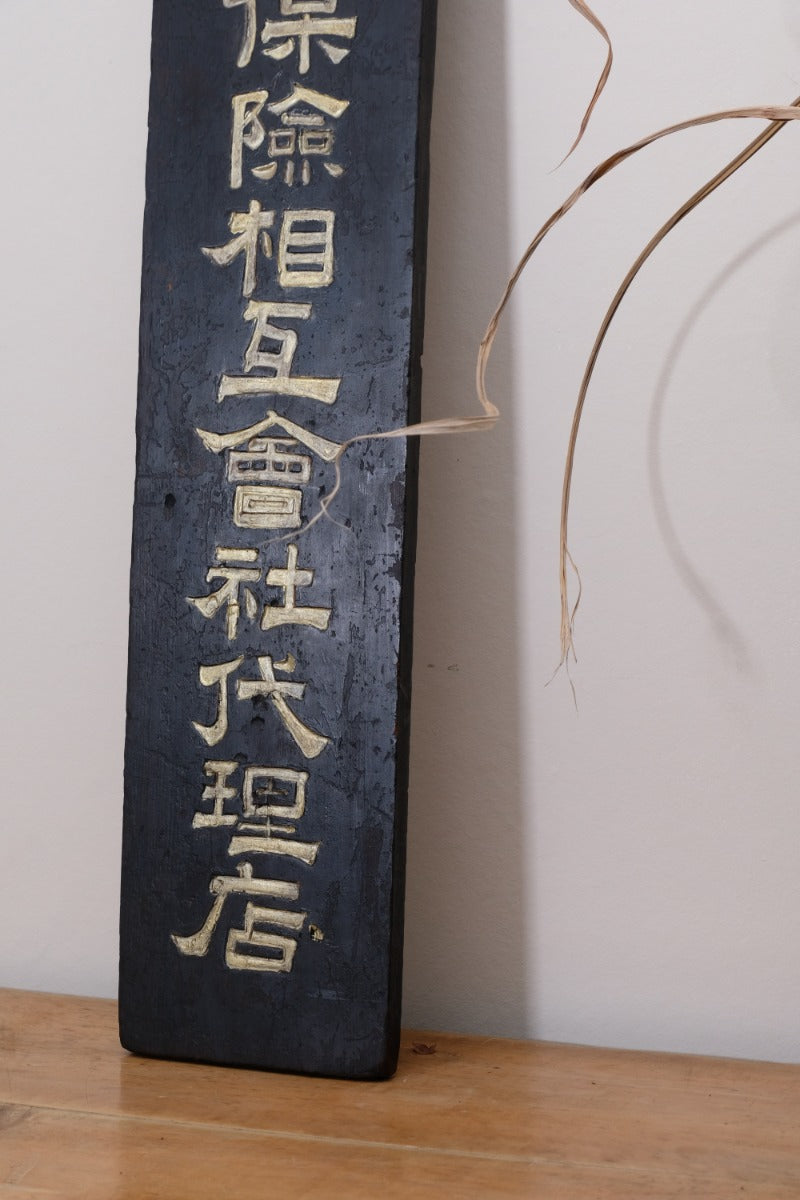 保險相互會社代理店